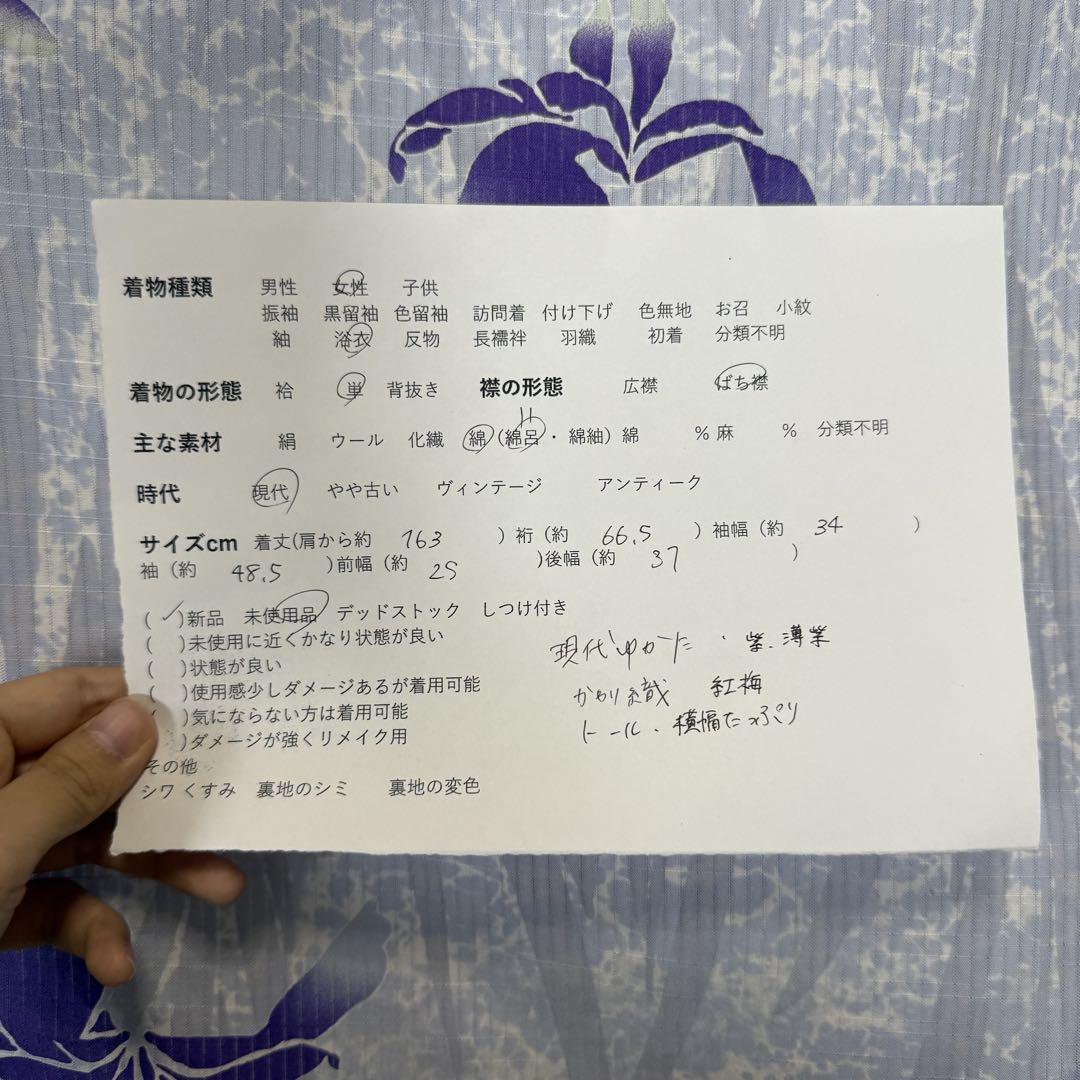 着物種類 男性 女性 子供
振袖 黒留袖 色留袖 訪問着 付け下げ 色無地 お召 小紋
紬 浴衣 反物 長襦袢 羽織 初着 分類不明
着物の形態 袷 単 背抜き 襟の形態 広襟 ばち襟
主な素材 絹 ウール 化繊 綿 (綿呂・綿紬) 綿 % 麻 % 分類不明
時代 現代 やや古い ヴィンテージ アンティーク
サイズcm 着丈(肩から約 163 ) 裄 (約 66.5 ) 袖幅 (約 34 )
袖 (約 48.5 )前幅 (約 25 )後幅 (約 37 )
(✓)新品 未使用品 デッドストック しつけ付き
( )未使用に近くかなり状態が良い
( )状態が良い
( )使用感少しダメージあるが着用可能
( )気にならない方は着用可能
)ダメージが強くリメイク用
その他
シワ くすみ 裏地のシミ 裏地の変色
現代ゆかた・紫、薄紫
かわり織 紅梅
トール、横幅たっぷり